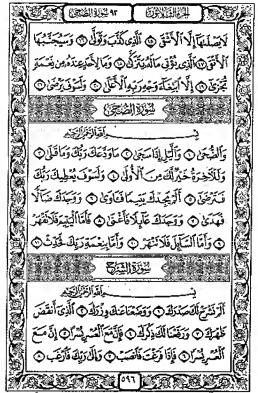 الجزء الثلاثون ٩٣ سورة الضحى
لَا يَصْلَىٰهَا إِلَّا الْأَشْقَى ١٥ الَّذِي كَذَّبَ وَتَوَلَّىٰ ١٦ وَسَيُجَنَّبُهَا
الْأَتْقَى ١٧ الَّذِي يُؤْتِي مَالَهُ يَتَزَكَّىٰ ١٨ وَمَا لِأَحَدٍ عِندَهُ مِن نِّعْمَةٍ
تُجْزَىٰ ١٩ إِلَّا ابْتِغَاءَ وَجْهِ رَبِّهِ الْأَعْلَىٰ ٢٠ وَلَسَوْفَ يَرْضَىٰ ٢١
سورة الضحى
بسم الله الرحمن الرحيم
وَالضُّحَىٰ ١ وَاللَّيْلِ إِذَا سَجَىٰ ٢ مَا وَدَّعَكَ رَبُّكَ وَمَا قَلَىٰ ٣
وَلَلْآخِرَةُ خَيْرٌ لَّكَ مِنَ الْأُولَىٰ ٤ وَلَسَوْفَ يُعْطِيكَ رَبُّكَ
فَتَرْضَىٰ ٥ أَلَمْ يَجِدْكَ يَتِيمًا فَآوَىٰ ٦ وَوَجَدَكَ ضَالًّا
فَهَدَىٰ ٧ وَوَجَدَكَ عَائِلًا فَأَغْنَىٰ ٨ فَأَمَّا الْيَتِيمَ فَلَا تَقْهَرْ
٩ وَأَمَّا السَّائِلَ فَلَا تَنْهَرْ ١٠ وَأَمَّا بِنِعْمَةِ رَبِّكَ فَحَدِّثْ ١١
سورة الشرح
بسم الله الرحمن الرحيم
أَلَمْ نَشْرَحْ لَكَ صَدْرَكَ ١ وَوَضَعْنَا عَنكَ وِزْرَكَ ٢ الَّذِي أَنقَضَ
ظَهْرَكَ ٣ وَرَفَعْنَا لَكَ ذِكْرَكَ ٤ فَإِنَّ مَعَ الْعُسْرِ يُسْرًا ٥ إِنَّ مَعَ
الْعُسْرِ يُسْرًا ٦ فَإِذَا فَرَغْتَ فَانصَبْ ٧ وَإِلَىٰ رَبِّكَ فَارْغَب ٨
٥٩٦